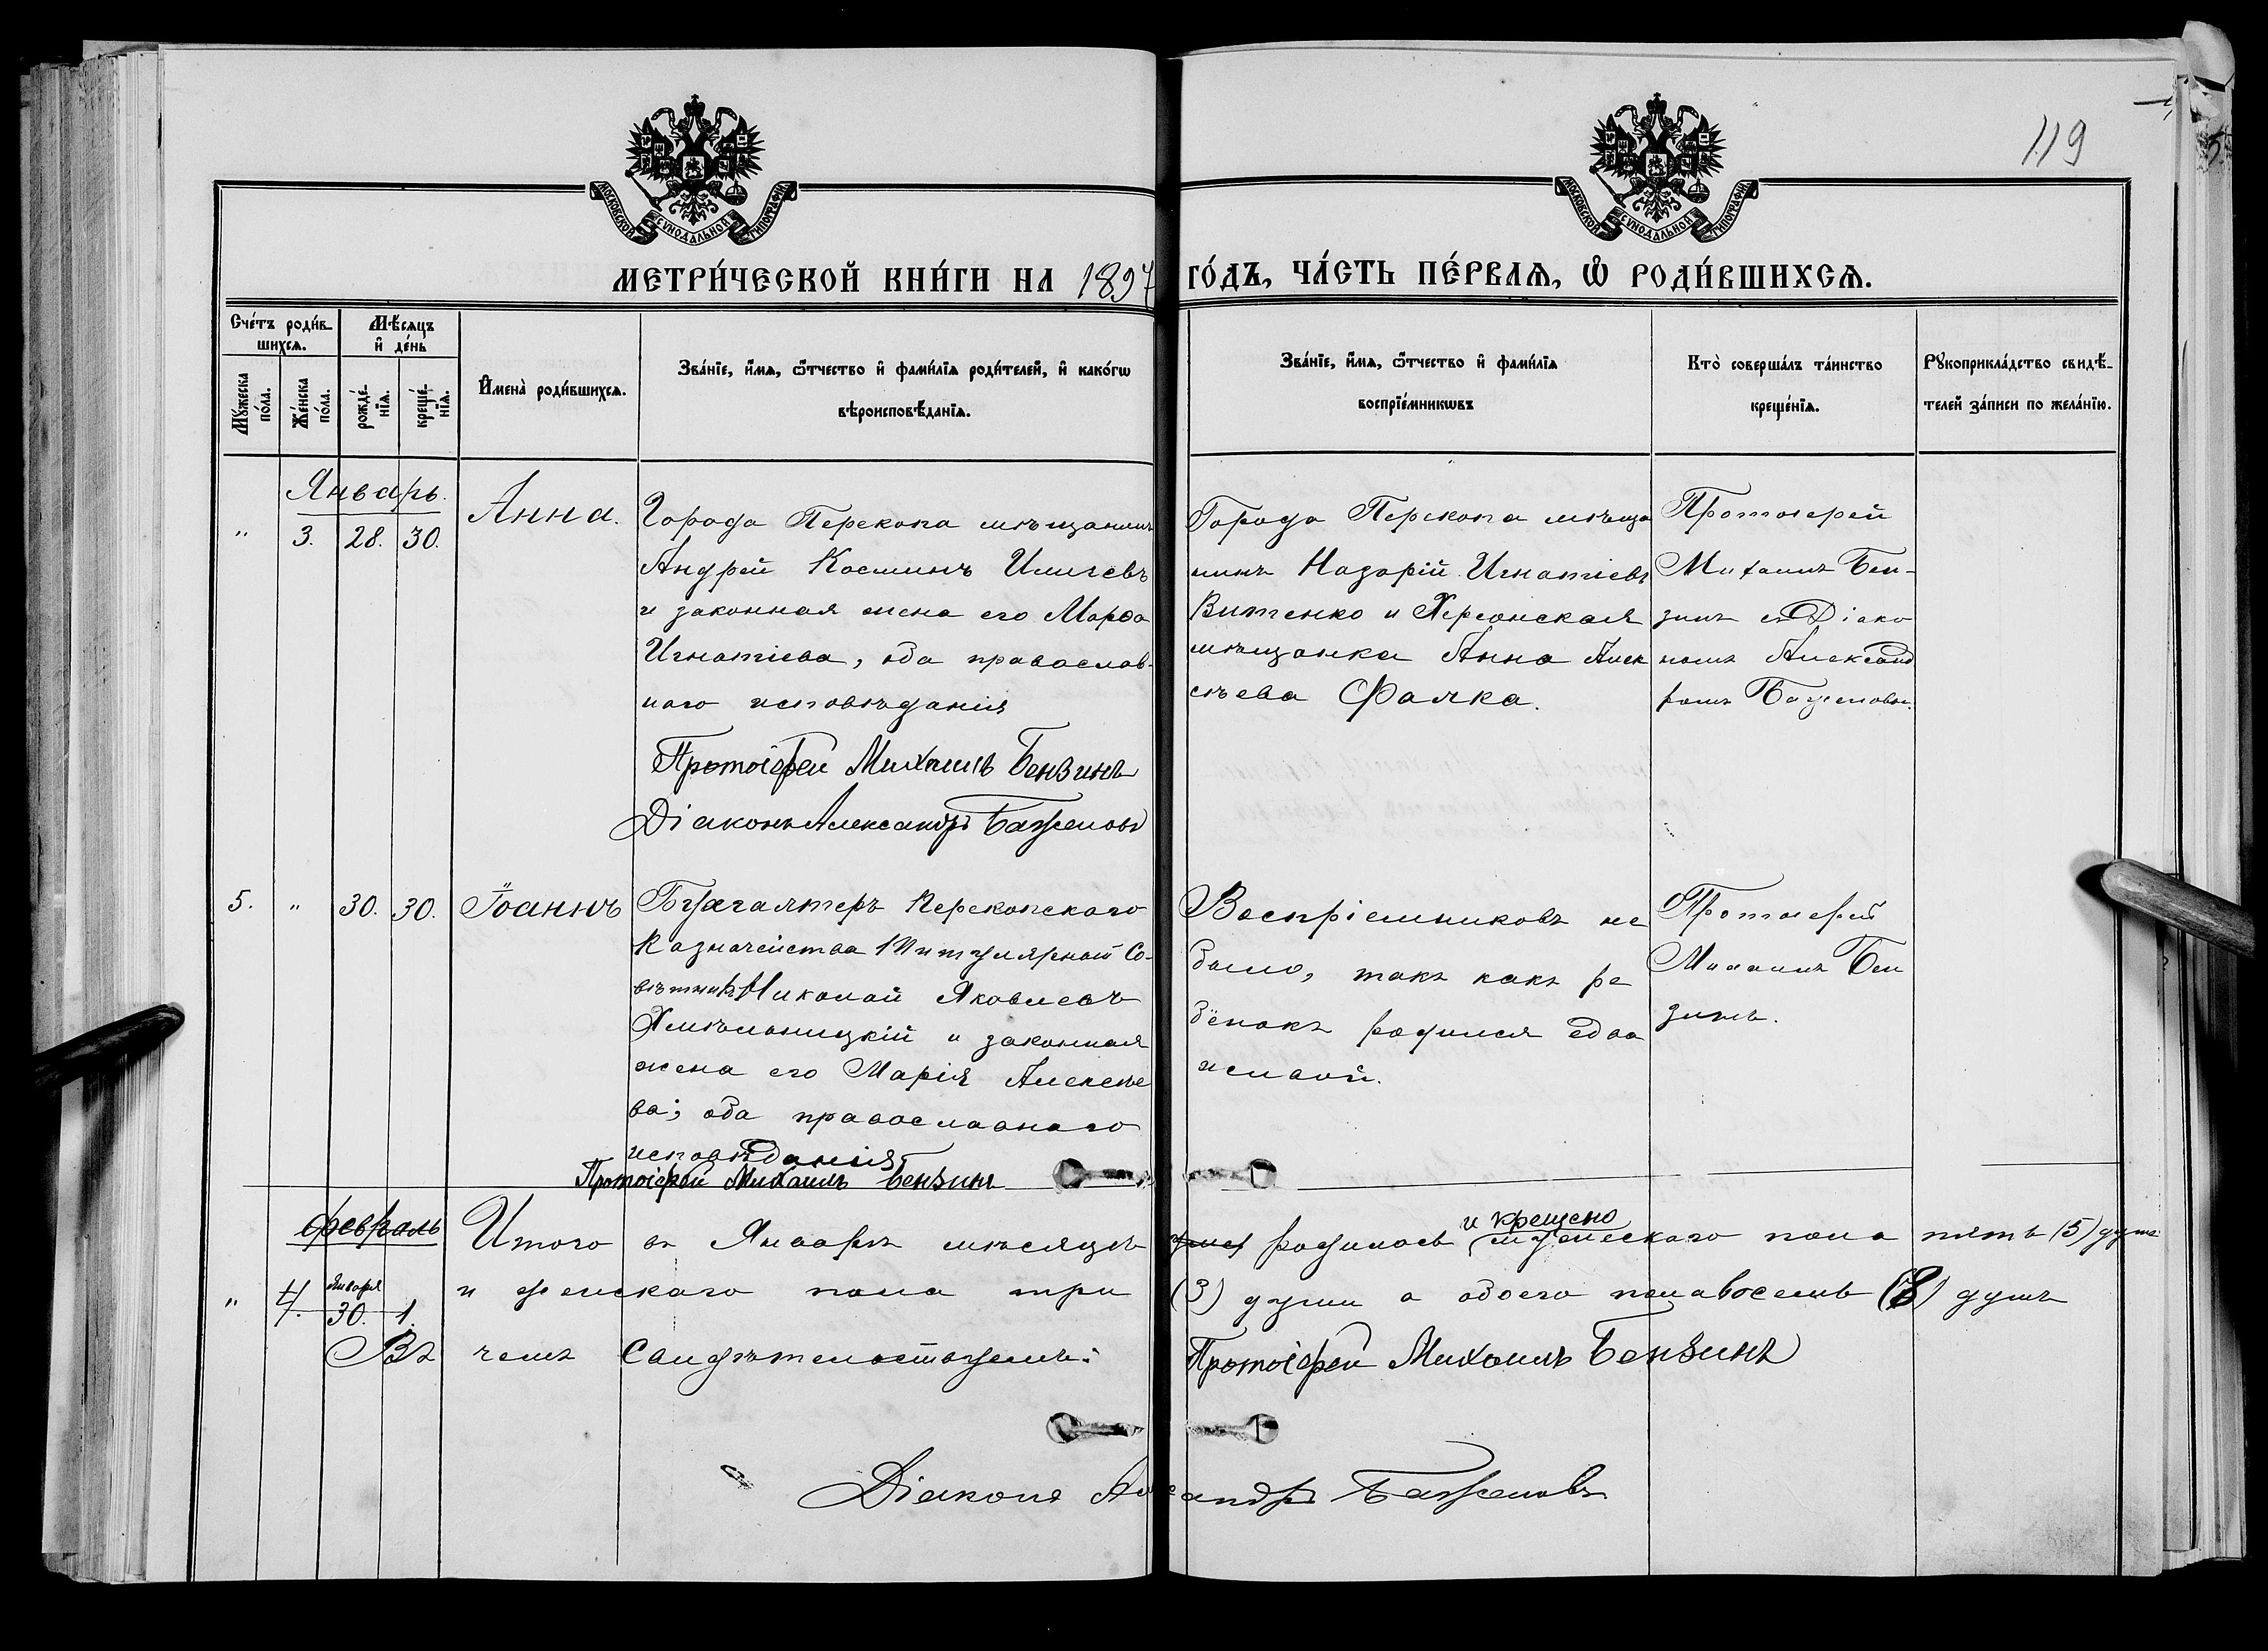 119
МОСКОВСКОЙ СѴНОДАЛЬНОЙ ТИПОГРАФІИ
МОСКОВСКОЙ СѴНОДАЛЬНОЙ ТИПОГРАФІИ
МЕТРИ́ЧЕСКОЙ КНИ́ГИ НА 1897 ГО́ДЪ, ЧА́СТЬ ПЕ́РВАѦ, Ѡ РОДИ́ВШИХСѦ.
Сче́тъ роди́в-
шихсѧ.
Мꙋ́жеска
по́ла.
Же́нска
по́ла.
Мѣ́сѧцъ
и҆ де́нь
рожде́-
нїѧ.
креще́-
нїѧ.
И҆мена̀ роди́вшихсѧ.
Зва́нїе, и҆́мѧ, ѻ҆́тчество и҆ фами́лїѧ роди́телей, и҆ како́гѡ
вѣроисповѣ́данїѧ.
Зва́нїе, и҆́мѧ, ѻ҆́тчество и҆ фами́лїѧ
воспрїе́мникѡвъ
Кто̀ соверша́лъ та́инство
креще́нїѧ.
Рꙋкоприкла́дство свидѣ́-
телей за́писи по жела́нїю.
Январь.
" 3. 28. 30.
Анна.
Города Перекопа мѣщанинъ
Андрей Косминъ
и законная жена его Марѳа
Игнатіева, оба православ-
наго исповѣданія
Протоіерей Михаилъ Бензинъ
Діаконъ Александръ Баженовъ
Города Перекопа мѣща
нинъ Назарій Игнатіевъ
Витенко и Херсонская
мѣщанка Анна Алек
сѣева Фалка.
Протоіерей
Михаилъ Бен-
зинъ съ Діако
номъ Александ
ромъ Баженовым.
5. " 30. 30.
Іоаннъ
Бухгалтеръ Перекопскаго
Казначейства Титулярный Со-
вѣтникъ Николай Яковлевъ
Хмѣльницкій и законная
жена его Марія Алексѣе
ва; оба православнаго
исповѣданія
Протоіерей Михаилъ Бензинъ
Воспріемниковъ не
было, такъ какъ ре
бёнокъ родился едва
живой.
Протоіерей
Михаилъ Бен
зинъ.
февраль
" 4. января 30. 1.
Итого въ Январѣ мѣсяцѣ родилось и крещено мужескаго пола пять (5) душъ
и женскаго пола три (3) души а обоего пола восемь (8) душъ
Въ чемъ Свидѣтельствуемъ: Протоіерей Михаилъ Бензинъ
Діаконъ Александръ Баженовъ